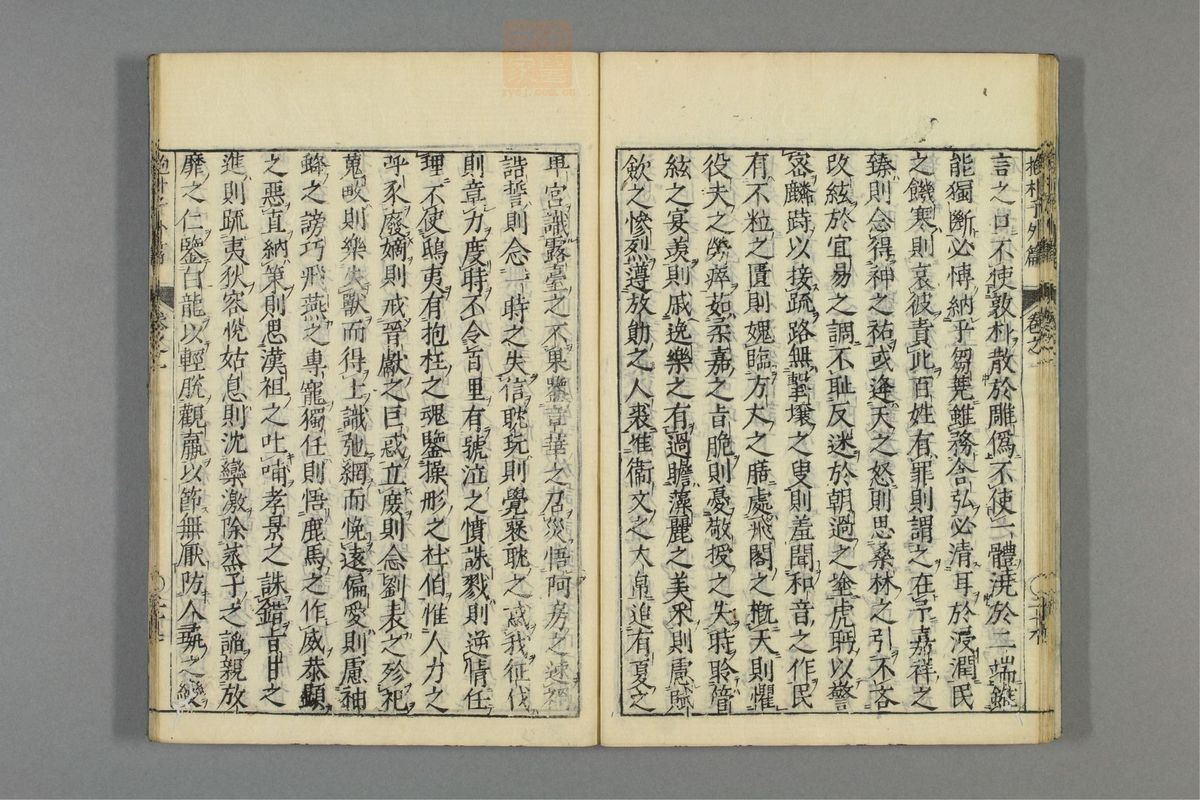 抱朴子外篇
言之口不使敦朴散於雕僞不使一體澆於二端
能獨斷必博納乎芻蕘雖務含弘必清耳於浸潤民
之饑寒則哀彼責此百姓有罪則謂之在予嘉祥之
臻則念得神之祐或逢天之怒則思桑林之引不吝
改絃於宜易之調不恥反迷於朝過之塗虎眄以警
密麟跱以接疏路無擊壤之叟則羞聞和音之作民
有不粒之匱則媿臨方丈之膳處飛閣之概天則懼
役夫之勞瘁茹柔嘉之旨脆則憂敬授之失時聆管
絃之宴羡則戚逸樂之有過瞻藻麗之美采則慮賦
歛之慘烈遵放勛之人裘准衞文之大帛追有夏之
卑宮識露臺之不果鑒章華之召災悟阿房之速禍
誥誓則念一時之失信耽玩則覺褒耽之惑我征伐
則章力度時不令百里有號泣之憤誅戮則逆情任
理不使鴟夷有抱枉之魂鑒操形之杜伯惟人力之
乎豕廢嫡則戒晉獻之巨惑立庶則念劉表之殄祀
蒐畋則樂失獸而得士識弛網而悅遠偏愛則慮袖
蜂之謗巧飛燕之專寵獨任則悟鹿馬之作威恭顯
之惡直納策則思漢祖之吐哺孝景之誅錯旨甘之
進則疏夷狄容悅姑息則沈欒激除蒸子之諂親放
麑之仁鑒白龍以輕脫觀羸以節無厭防人彘之變